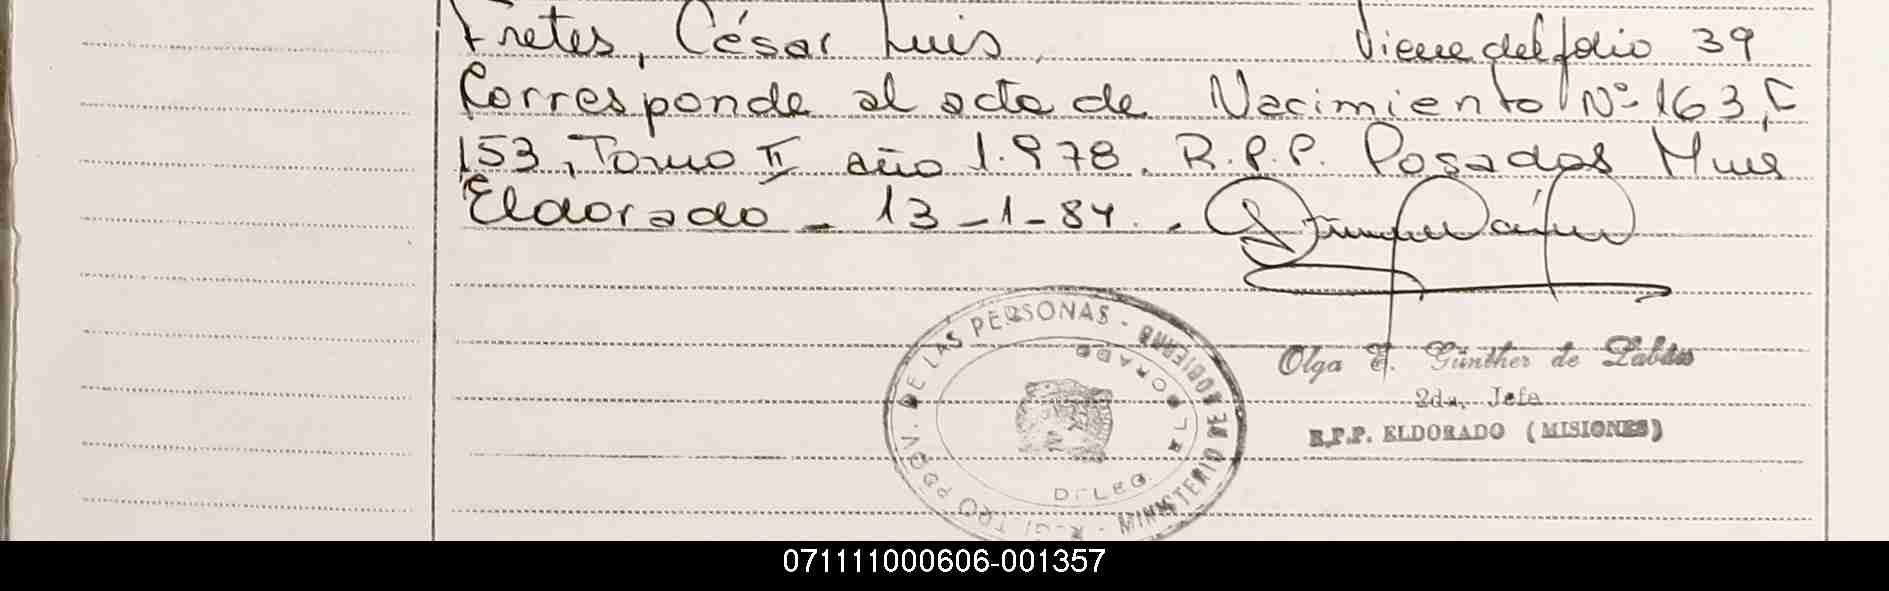 Fretes, César Luis, Viene del folio 39
Corresponde al acta de Nacimiento Nº 163, F
153, Tomo II año 1.978. R.P.P. Posadas Mnes
Eldorado - 13-1-84.
REGISTRO PROV. DE LAS PERSONAS - MINISTERIO DE GOBIERNO
ELDORADO
Olga E. Günther de
2da. Jefe
R.P.P. ELDORADO (MISIONES)
071111000606-001357